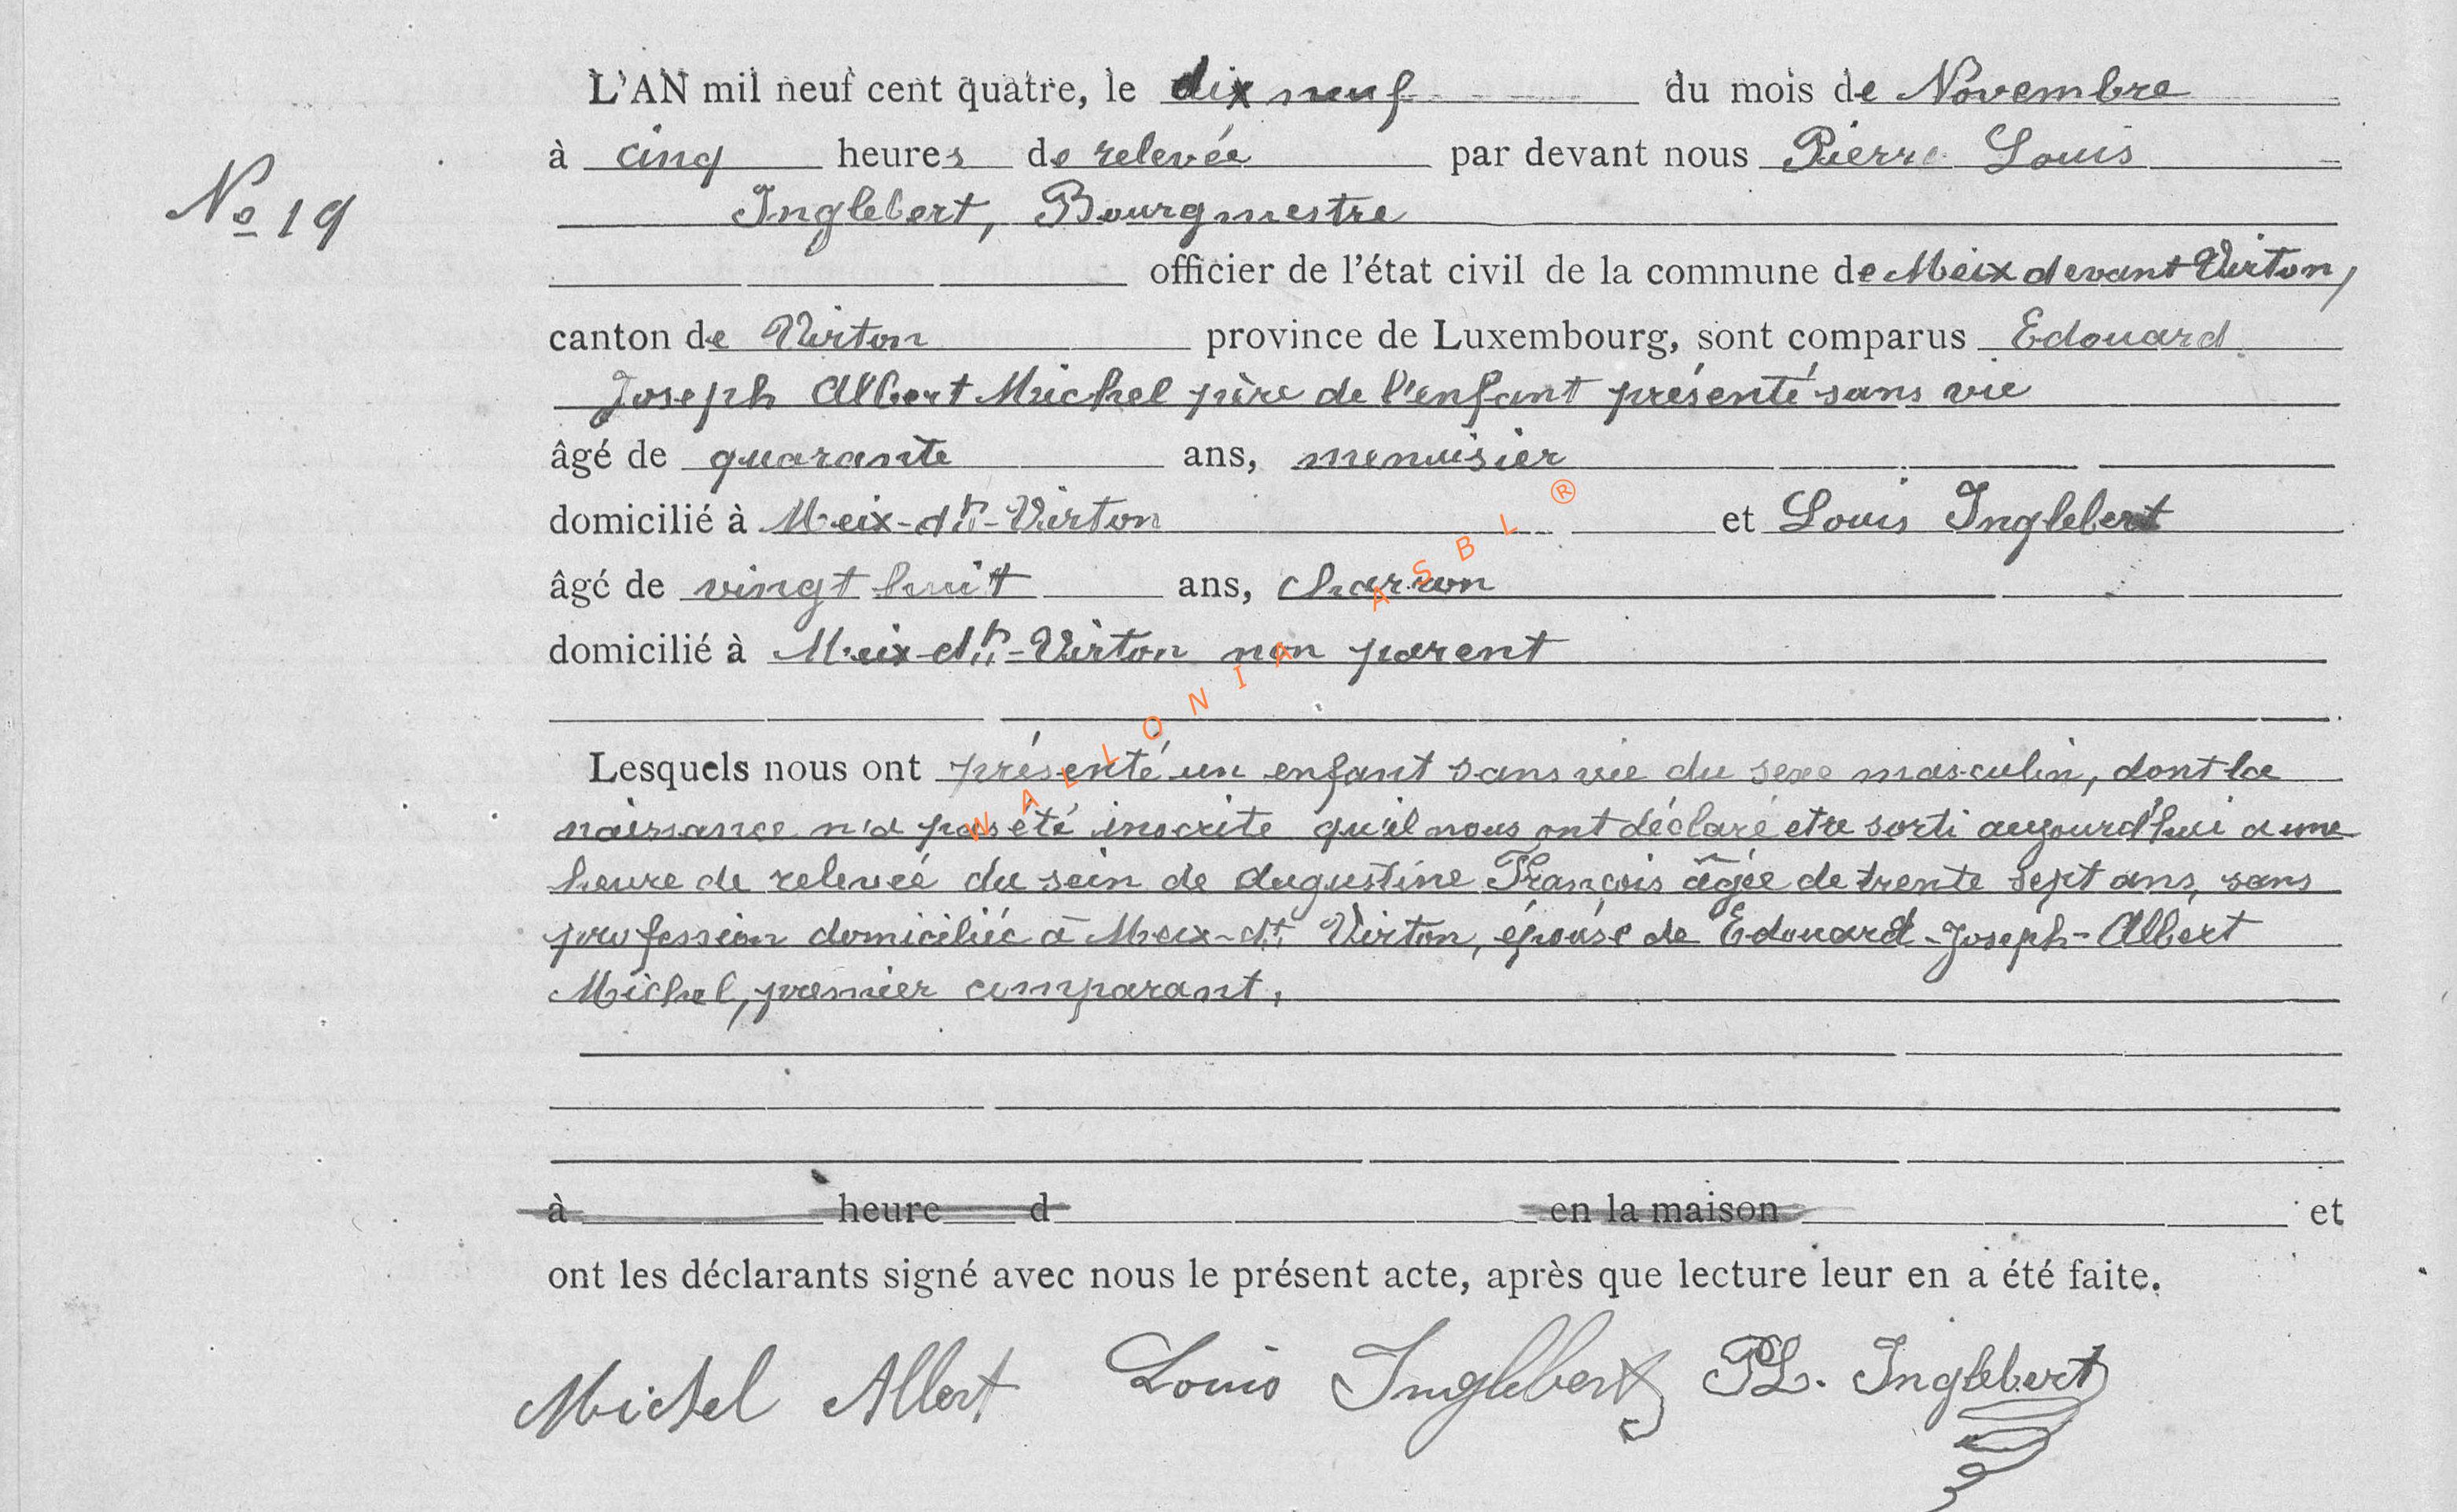 L'AN mil neuf cent quatre, le dix neuf du mois de Novembre
à cinq heures de relevée par devant nous Pierre Louis
No 19
Inglebert, Bourgmestre
officier de l'état civil de la commune de Meix devant Virton,
canton de Virton province de Luxembourg, sont comparus Edouard
Joseph Albert Michel père de l'enfant présenté sans vie
âgé de quarante ans, menuisier
domicilié à Meix-dt-Virton et Louis Inglebert
âgé de vingt huit ans, charron
domicilié à Meix-dt-Virton non parent
Lesquels nous ont présenté un enfant sans vie du sexe masculin, dont la
naissance n'a pas été inscrite qu'il nous ont déclaré etre sorti aujourd'hui a une
heure de relevée du sein de Augustine François âgée de trente sept ans, sans
profession domiciliée à Meix-dt Virton, épouse de Edouard-Joseph-Albert
Michel, premier comparant,
à heure d en la maison et
ont les déclarants signé avec nous le présent acte, après que lecture leur en a été faite.
Michel Albert Louis Inglebert PL. Inglebert
WALLONIA ASBL ®